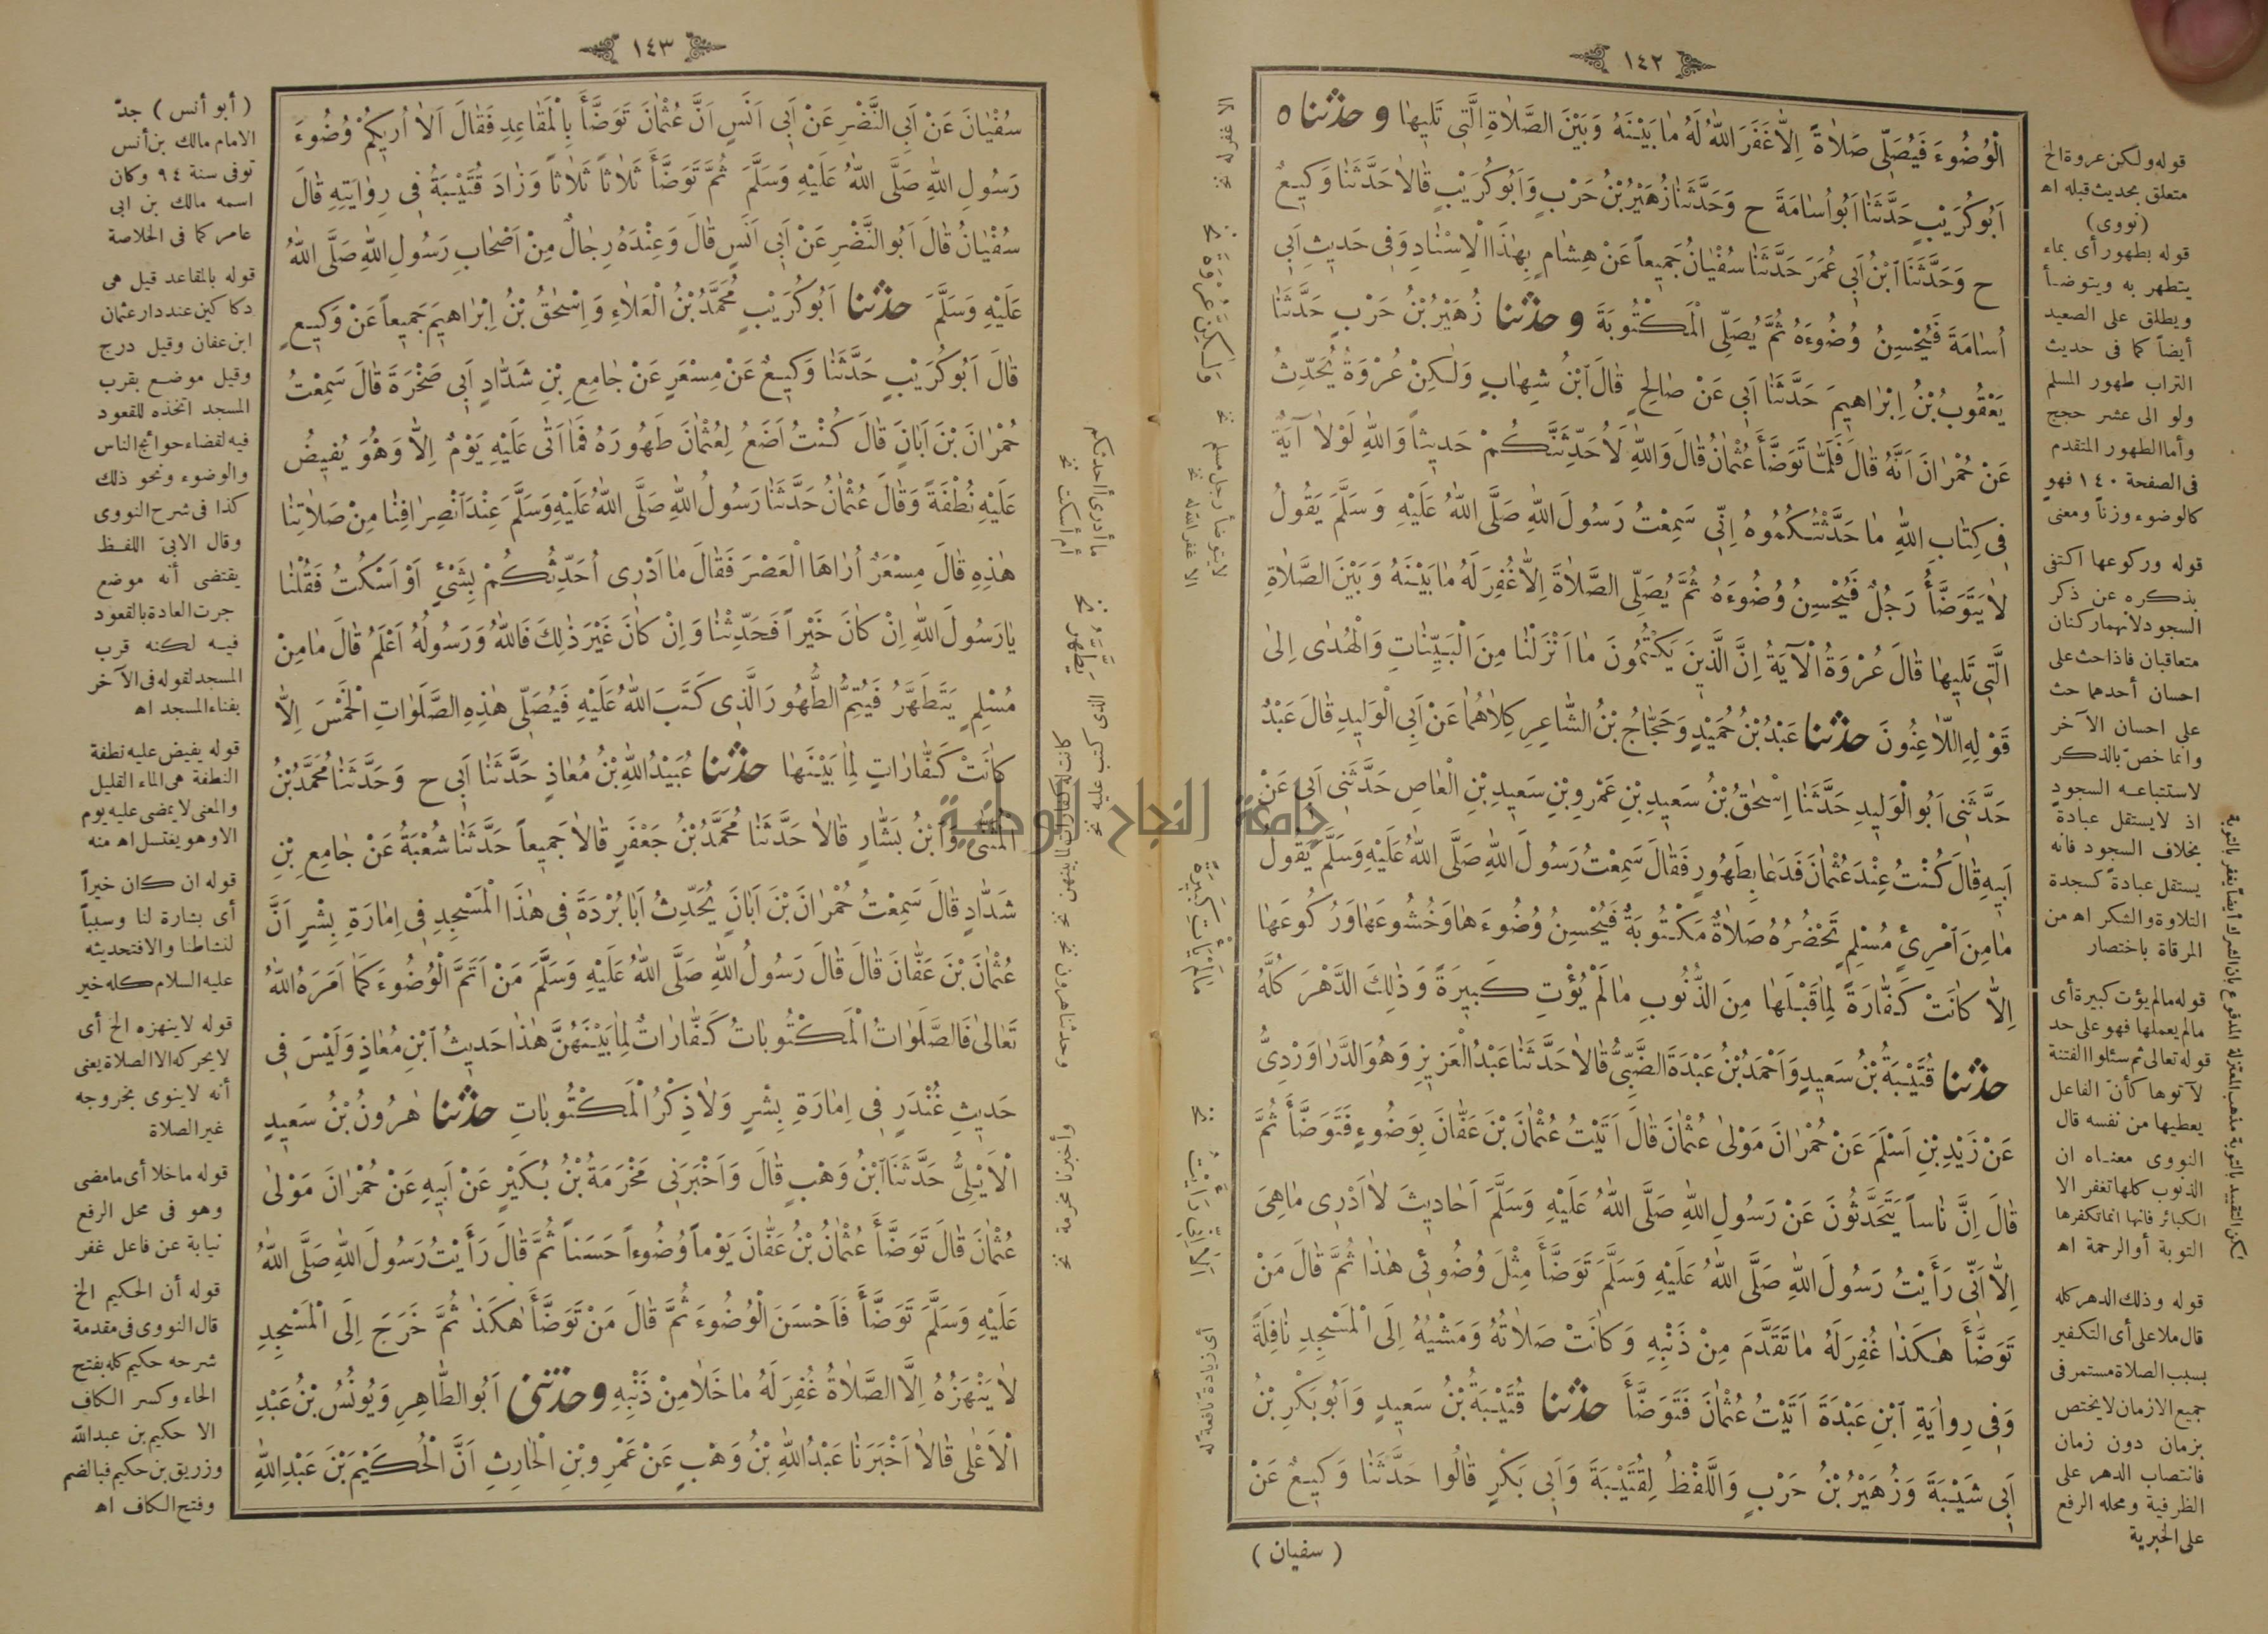 ١٤٢
الْوُضُوءَ فَيُصَلِّى صَلَاةً اِلَّا غَفَرَ اللهُ لَهُ مَا بَيْنَهُ وَبَيْنَ الصَّلَاةِ الَّتِى تَلِيهَا وحدثناه
اَبُو كُرَيْبٍ حَدَّثَنَا اَبُو اُسَامَةَ ح وَحَدَّثَنَا زُهَيْرُ بْنُ حَرْبٍ وَاَبُو كُرَيْبٍ قَالَا حَدَّثَنَا وَكِيعٌ
ح وَحَدَّثَنَا ابْنُ اَبِى عُمَرَ حَدَّثَنَا سُفْيَانُ جَمِيعاً عَنْ هِشَامٍ بِهٰذَا الْاِسْنَادِ وَفِى حَدِيثِ اَبِى
اُسَامَةَ فَيُحْسِنُ وُضُوءَهُ ثُمَّ يُصَلِّى الْمَكْتُوبَةَ وحدثنا زُهَيْرُ بْنُ حَرْبٍ حَدَّثَنَا
يَعْقُوبُ بْنُ اِبْرَاهِيمَ حَدَّثَنَا اَبِى عَنْ صَالِحٍ قَالَ ابْنُ شِهَابٍ وَلٰكِنْ عُرْوَةُ يُحَدِّثُ
عَنْ حُمْرَانَ اَنَّهُ قَالَ فَلَمَّا تَوَضَّأَ عُثْمَانُ قَالَ وَاللهِ لَاُحَدِّثَنَّكُمْ حَدِيثاً وَاللهِ لَوْلَا آيَةٌ
فِى كِتَابِ اللهِ مَا حَدَّثْتُكُمُوهُ اِنِّى سَمِعْتُ رَسُولَ اللهِ صَلَّى اللهُ عَلَيْهِ وَسَلَّمَ يَقُولُ
لَا يَتَوَضَّأُ رَجُلٌ فَيُحْسِنُ وُضُوءَهُ ثُمَّ يُصَلِّى الصَّلَاةَ اِلَّا غُفِرَ لَهُ مَا بَيْنَهُ وَبَيْنَ الصَّلَاةِ
الَّتِى تَلِيهَا قَالَ عُرْوَةُ الْآيَةُ اِنَّ الَّذِينَ يَكْتُمُونَ مَا اَنْزَلْنَا مِنَ الْبَيِّنَاتِ وَالْهُدٰى اِلىٰ
قَوْلِهِ اللَّاعِنُونَ حدثنا عَبْدُ بْنُ حُمَيْدٍ وَحَجَّاجُ بْنُ الشَّاعِرِ كِلَاهُمَا عَنْ اَبِى الْوَلِيدِ قَالَ عَبْدٌ
حَدَّثَنِى اَبُو الْوَلِيدِ حَدَّثَنَا اِسْحٰقُ بْنُ سَعِيدِ بْنِ عَمْرِو بْنِ سَعِيدِ بْنِ الْعَاصِ حَدَّثَنِى اَبِى عَنْ
اَبِيهِ قَالَ كُنْتُ عِنْدَ عُثْمَانَ فَدَعَا بِطَهُورٍ فَقَالَ سَمِعْتُ رَسُولَ اللهِ صَلَّى اللهُ عَلَيْهِ وَسَلَّمَ يَقُولُ
مَا مِنَ امْرِئٍ مُسْلِمٍ تَحْضُرُهُ صَلَاةٌ مَكْتُوبَةٌ فَيُحْسِنُ وُضُوءَهَا وَخُشُوعَهَا وَرُكُوعَهَا
اِلَّا كَانَتْ كَفَّارَةً لِمَا قَبْلَهَا مِنَ الذُّنُوبِ مَا لَمْ يُؤْتِ كَبِيرَةً وَذٰلِكَ الدَّهْرَ كُلَّهُ
حدثنا قُتَيْبَةُ بْنُ سَعِيدٍ وَاَحْمَدُ بْنُ عَبْدَةَ الضَّبِّىُّ قَالَا حَدَّثَنَا عَبْدُ الْعَزِيزِ وَهُوَ الدَّرَاوَرْدِىُّ
عَنْ زَيْدِ بْنِ اَسْلَمَ عَنْ حُمْرَانَ مَوْلىٰ عُثْمَانَ قَالَ اَتَيْتُ عُثْمَانَ بْنَ عَفَّانَ بِوَضُوءٍ فَتَوَضَّأَ ثُمَّ
قَالَ اِنَّ نَاساً يَتَحَدَّثُونَ عَنْ رَسُولِ اللهِ صَلَّى اللهُ عَلَيْهِ وَسَلَّمَ اَحَادِيثَ لَا اَدْرِى مَا هِىَ
اِلَّا اَنِّى رَأَيْتُ رَسُولَ اللهِ صَلَّى اللهُ عَلَيْهِ وَسَلَّمَ تَوَضَّأَ مِثْلَ وُضُوئِى هٰذَا ثُمَّ قَالَ مَنْ
تَوَضَّأَ هٰكَذَا غُفِرَ لَهُ مَا تَقَدَّمَ مِنْ ذَنْبِهِ وَكَانَتْ صَلَاتُهُ وَمَشْيُهُ اِلَى الْمَسْجِدِ نَافِلَةً
وَفِى رِوَايَةِ ابْنِ عَبْدَةَ اَتَيْتُ عُثْمَانَ فَتَوَضَّأَ حدثنا قُتَيْبَةُ بْنُ سَعِيدٍ وَاَبُو بَكْرِ بْنُ
اَبِى شَيْبَةَ وَزُهَيْرُ بْنُ حَرْبٍ وَاللَّفْظُ لِقُتَيْبَةَ وَاَبِى بَكْرٍ قَالُوا حَدَّثَنَا وَكِيعٌ عَنْ
( سفيان )
قوله ولكن عروة الخ
متعلق بحديث قبله اه
(نووى)
قوله بطهور أى بماء
يتطهر به ويتوضأ
ويطلق على الصعيد
أيضاً كما فى حديث
التراب طهور المسلم
ولو الى عشر حجج
وأما الطهور المتقدم
فى الصفحة ١٤٠ فهو
كالوضوء وزناً ومعنى
قوله وركوعها اكتفى
بذكره عن ذكر
السجود لانهما ركنان
متعاقبان فاذا حث على
احسان أحدهما حث
على احسان الآخر
وانما خصّ بالذكر
لاستتباعه السجود
اذ لا يستقل عبادة
بخلاف السجود فانه
يستقل عبادة كسجدة
التلاوة والشكر اه من
المرقاة باختصار
قوله ما لم يؤت كبيرة أى
ما لم يعملها فهو على حد
قوله تعالى ثم سئلوا الفتنة
لآتوها كأنّ الفاعل
يعطيها من نفسه قال
النووى معناه ان
الذنوب كلها تغفر الا
الكبائر فانها انما تكفرها
التوبة أو الرحمة اه
قوله وذلك الدهر كله
قال ملا على أى التكفير
بسبب الصلاة مستمر فى
جميع الازمان لا يختص
بزمان دون زمان
فانتصاب الدهر على
الظرفية ومحله الرفع
على الخبرية
الا غفر له نخ
وَلٰكِنَّ عُرْوَةَ نخ
لا يتوضأ رجل مسلم نخ
الا غفر الله له نخ
مَا لَمْ يَأْتِ كَبِيرَةً
اِلَّا اَنِّى رَأَيْتُ نخ
أى زيادة نافعة له
جامعة النجاح الوطنية
١٤٣
سُفْيَانَ عَنْ اَبِى النَّضْرِ عَنْ اَبِى اَنَسٍ اَنَّ عُثْمَانَ تَوَضَّأَ بِالْمَقَاعِدِ فَقَالَ اَلَا اُرِيكُمْ وُضُوءَ
رَسُولِ اللهِ صَلَّى اللهُ عَلَيْهِ وَسَلَّمَ ثُمَّ تَوَضَّأَ ثَلَاثاً ثَلَاثاً وَزَادَ قُتَيْبَةُ فِى رِوَايَتِهِ قَالَ
سُفْيَانُ قَالَ اَبُو النَّضْرِ عَنْ اَبِى اَنَسٍ قَالَ وَعِنْدَهُ رِجَالٌ مِنْ اَصْحَابِ رَسُولِ اللهِ صَلَّى اللهُ
عَلَيْهِ وَسَلَّمَ حدثنا اَبُو كُرَيْبٍ مُحَمَّدُ بْنُ الْعَلَاءِ وَاِسْحٰقُ بْنُ اِبْرَاهِيمَ جَمِيعاً عَنْ وَكِيعٍ
قَالَ اَبُو كُرَيْبٍ حَدَّثَنَا وَكِيعٌ عَنْ مِسْعَرٍ عَنْ جَامِعِ بْنِ شَدَّادٍ اَبِى صَخْرَةَ قَالَ سَمِعْتُ
حُمْرَانَ بْنَ اَبَانٍ قَالَ كُنْتُ اَضَعُ لِعُثْمَانَ طَهُورَهُ فَمَا اَتٰى عَلَيْهِ يَوْمٌ اِلَّا وَهُوَ يُفِيضُ
عَلَيْهِ نُطْفَةً وَقَالَ عُثْمَانُ حَدَّثَنَا رَسُولُ اللهِ صَلَّى اللهُ عَلَيْهِ وَسَلَّمَ عِنْدَ انْصِرَافِنَا مِنْ صَلَاتِنَا
هٰذِهِ قَالَ مِسْعَرٌ اُرَاهَا الْعَصْرَ فَقَالَ مَا اَدْرِى اُحَدِّثُكُمْ بِشَىْءٍ اَوْ اَسْكُتُ فَقُلْنَا
يَا رَسُولَ اللهِ اِنْ كَانَ خَيْراً فَحَدِّثْنَا وَاِنْ كَانَ غَيْرَ ذٰلِكَ فَاللهُ وَرَسُولُهُ اَعْلَمُ قَالَ مَا مِنْ
مُسْلِمٍ يَتَطَهَّرُ فَيُتِمُّ الطُّهُورَ الَّذِى كَتَبَ اللهُ عَلَيْهِ فَيُصَلِّى هٰذِهِ الصَّلَوَاتِ الْخَمْسَ اِلَّا
كَانَتْ كَفَّارَاتٍ لِمَا بَيْنَهَا حدثنا عُبَيْدُ اللهِ بْنُ مُعَاذٍ حَدَّثَنَا اَبِى ح وَحَدَّثَنَا مُحَمَّدُ بْنُ
الْمُثَنّٰى وَابْنُ بَشَّارٍ قَالَا حَدَّثَنَا مُحَمَّدُ بْنُ جَعْفَرٍ قَالَا جَمِيعاً حَدَّثَنَا شُعْبَةُ عَنْ جَامِعِ بْنِ
شَدَّادٍ قَالَ سَمِعْتُ حُمْرَانَ بْنَ اَبَانٍ يُحَدِّثُ اَبَا بُرْدَةَ فِى هٰذَا الْمَسْجِدِ فِى اِمَارَةِ بِشْرٍ اَنَّ
عُثْمَانَ بْنَ عَفَّانَ قَالَ قَالَ رَسُولُ اللهِ صَلَّى اللهُ عَلَيْهِ وَسَلَّمَ مَنْ اَتَمَّ الْوُضُوءَ كَمَا اَمَرَهُ اللهُ
تَعَالىٰ فَالصَّلَوَاتُ الْمَكْتُوبَاتُ كَفَّارَاتٌ لِمَا بَيْنَهُنَّ هٰذَا حَدِيثُ ابْنِ مُعَاذٍ وَلَيْسَ فِى
حَدِيثِ غُنْدَرٍ فِى اِمَارَةِ بِشْرٍ وَلَا ذِكْرُ الْمَكْتُوبَاتِ حدثنا هٰرُونُ بْنُ سَعِيدٍ
الْاَيْلِىُّ حَدَّثَنَا ابْنُ وَهْبٍ قَالَ وَاَخْبَرَنِى مَخْرَمَةُ بْنُ بُكَيْرٍ عَنْ اَبِيهِ عَنْ حُمْرَانَ مَوْلىٰ
عُثْمَانَ قَالَ تَوَضَّأَ عُثْمَانُ بْنُ عَفَّانَ يَوْماً وُضُوءاً حَسَناً ثُمَّ قَالَ رَأَيْتُ رَسُولَ اللهِ صَلَّى اللهُ
عَلَيْهِ وَسَلَّمَ تَوَضَّأَ فَاَحْسَنَ الْوُضُوءَ ثُمَّ قَالَ مَنْ تَوَضَّأَ هٰكَذَا ثُمَّ خَرَجَ اِلَى الْمَسْجِدِ
لَا يَنْهَزُهُ اِلَّا الصَّلَاةُ غُفِرَ لَهُ مَا خَلَا مِنْ ذَنْبِهِ وحدثنى اَبُو الطَّاهِرِ وَيُونُسُ بْنُ عَبْدِ
الْاَعْلٰى قَالَا اَخْبَرَنَا عَبْدُ اللهِ بْنُ وَهْبٍ عَنْ عَمْرِو بْنِ الْحَارِثِ اَنَّ الْحُكَيْمَ بْنَ عَبْدِ اللهِ
ما أدرى أ أحدثكم
أم أسكت نخ
يَطَّهَّرُ نخ
الذى كتب عليه نخ
كانت له كفارات لما بينهن نخ
وحدثنا هرون نخ
وأخبرنا مخرمة نخ
( أبو أنس ) جدّ
الامام مالك بن أنس
توفى سنة ٩٤ وكان
اسمه مالك بن ابى
عامر كما فى الخلاصة
قوله بالمقاعد قيل هى
دكاكين عند دار عثمان
ابن عفان وقيل درج
وقيل موضع بقرب
المسجد اتخذه للقعود
فيه لقضاء حوائج الناس
والوضوء ونحو ذلك
كذا فى شرح النووى
وقال الابىّ اللفظ
يقتضى أنه موضع
جرت العادة بالقعود
فيه لكنه قرب
المسجد لقوله فى الآخر
بفناء المسجد اه
قوله يفيض عليه نطفة
النطفة هى الماء القليل
والمعنى لا يمضى عليه يوم
الا وهو يغتسل اه منه
قوله ان كان خيراً
أى بشارة لنا وسبباً
لنشاطنا والا فتحديثه
عليه السلام كله خير
قوله لا ينهزه الخ أى
لا يحركه الا الصلاة يعنى
أنه لا ينوى بخروجه
غير الصلاة
قوله ما خلا أى ما مضى
وهو فى محل الرفع
نيابة عن فاعل غفر
قوله أن الحكيم الخ
قال النووى فى مقدمة
شرحه حكيم كله بفتح
الحاء وكسر الكاف
الا حكيم بن عبدالله
وزريق بن حكيم فبالضم
وفتح الكاف اه